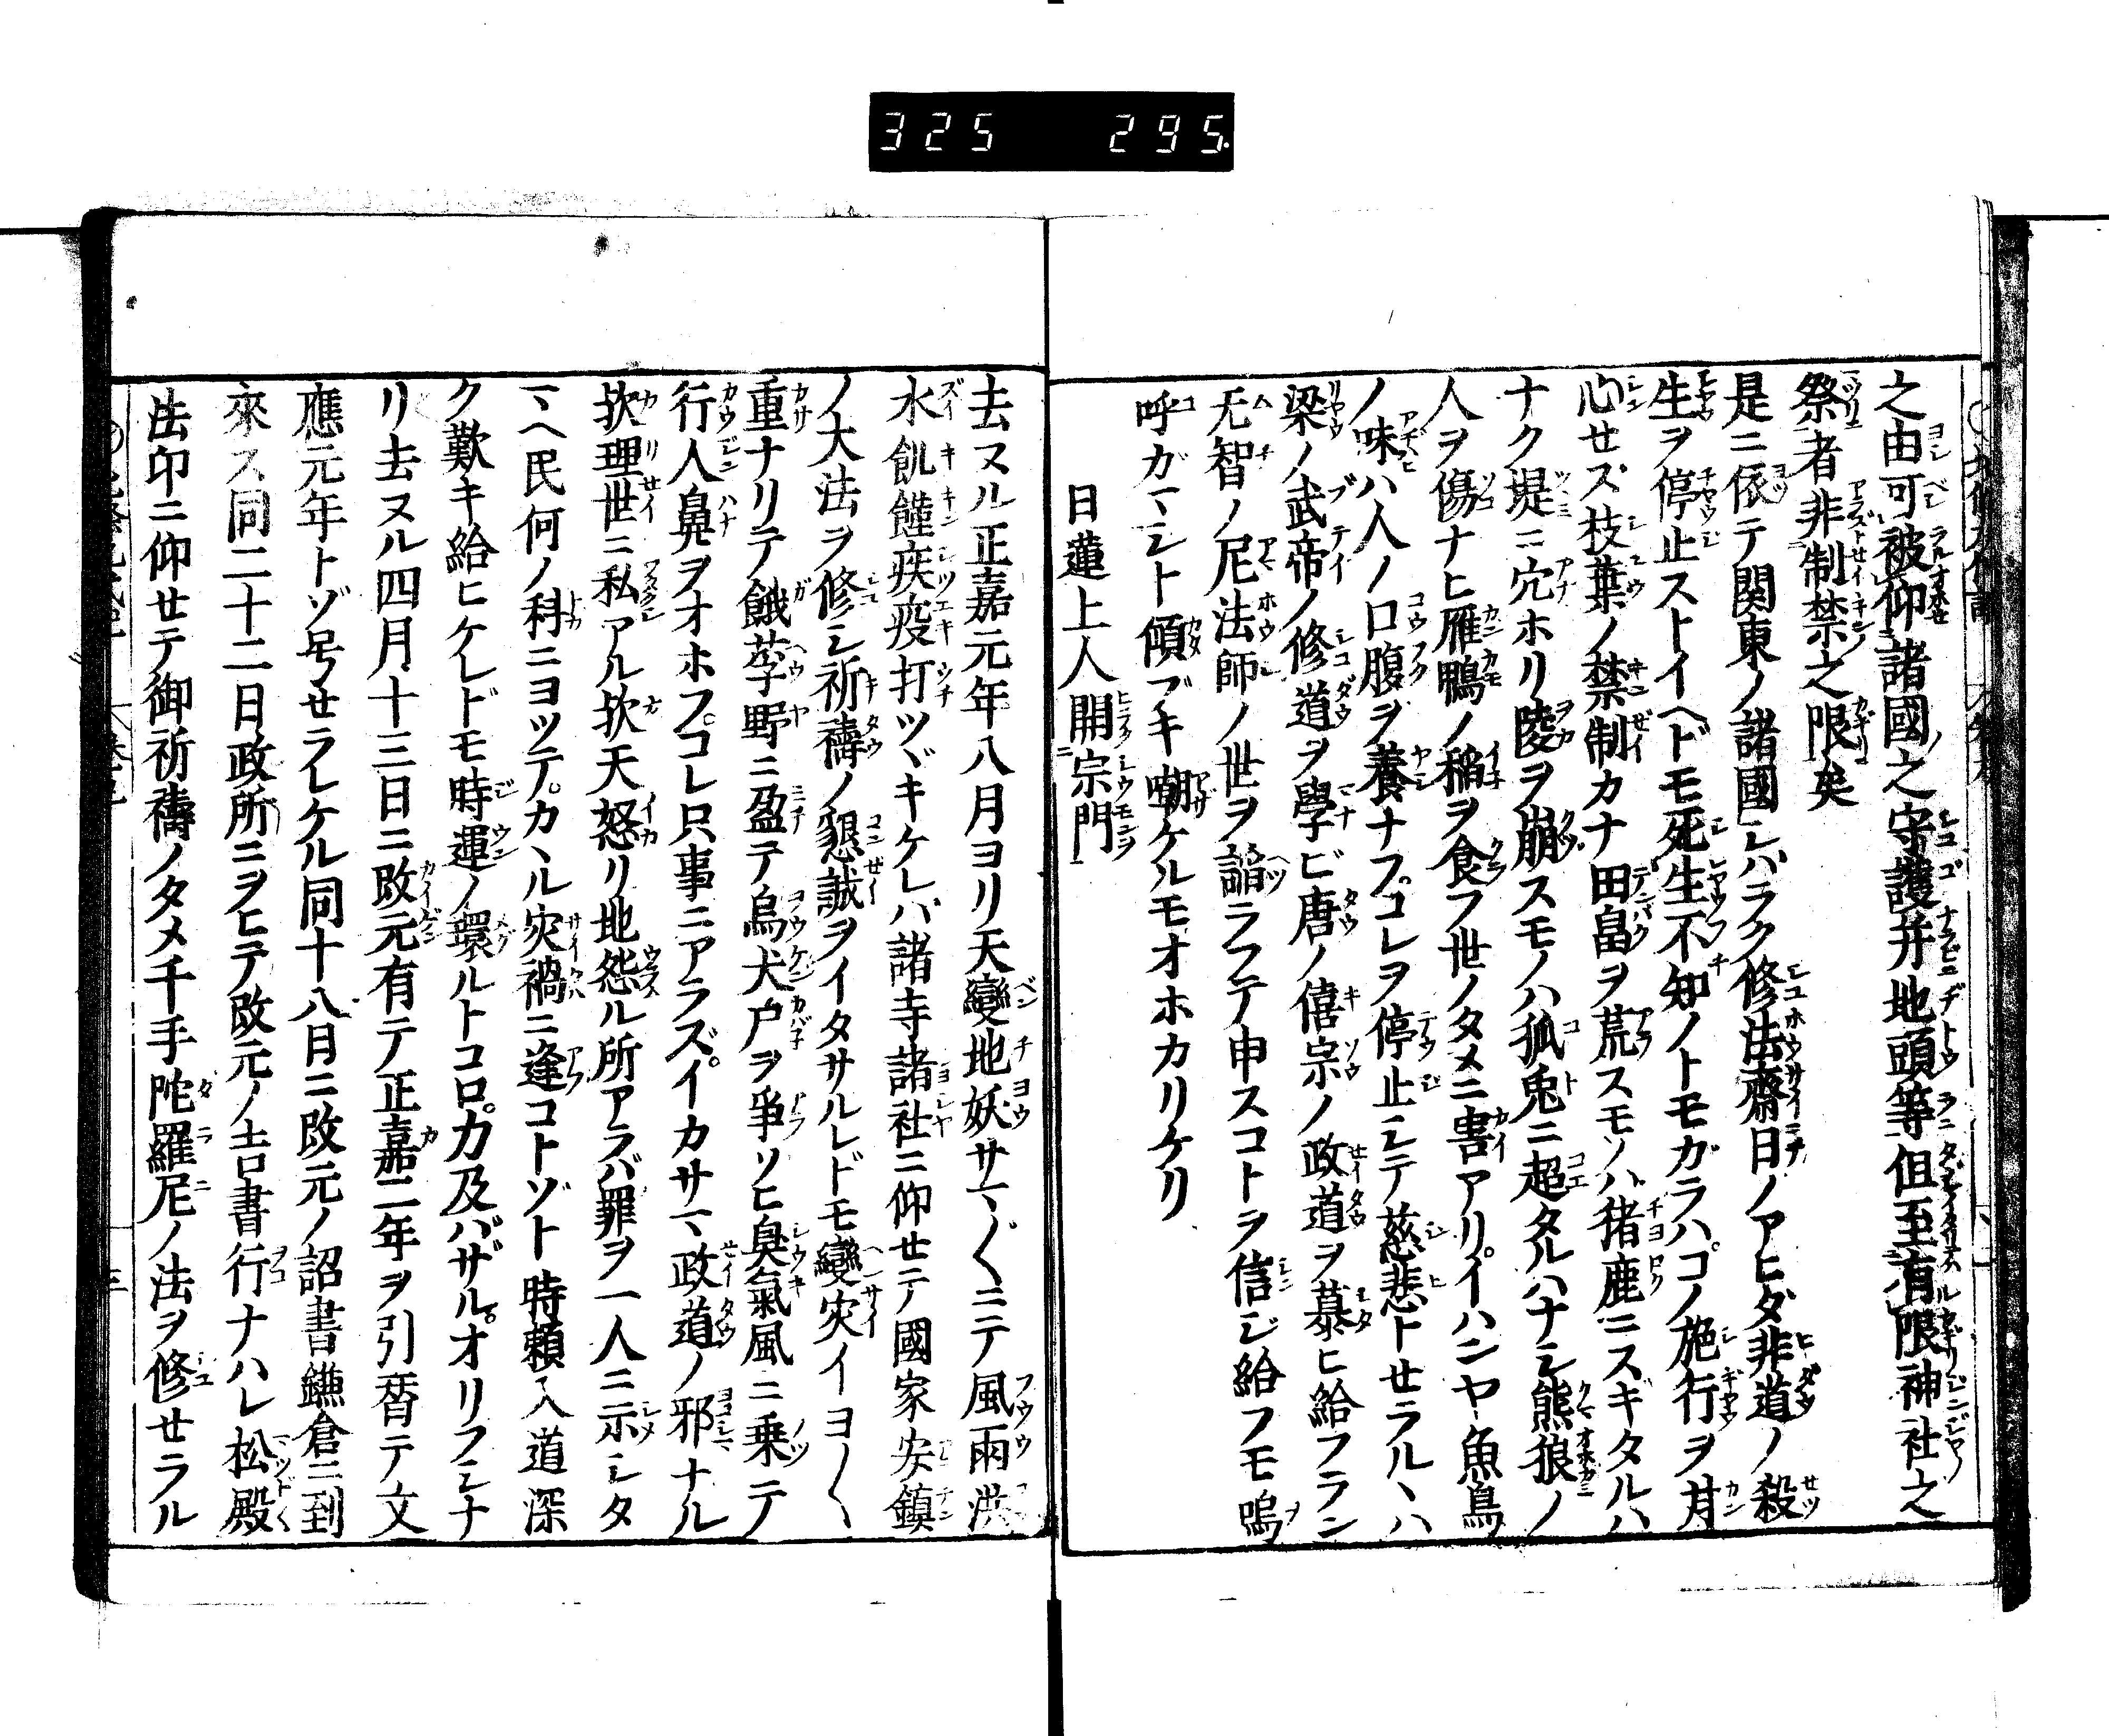 325 295
之由可被仰諸國之守護并地頭等但至有限神社之
祭者非制禁之限矣
是ニ依テ関東ノ諸國シバラク修法齋日ノアヒダ非道ノ殺
生ヲ停止ストイヘドモ死生不知ノトモガラハコノ施行ヲ甘
心セズ枝葉ノ禁制カナ田畠ヲ荒スモノハ猪鹿ニスギタルハ
ナク堤ニ穴ホリ陵ヲ崩スモノハ狐兎ニ超タルハナシ熊狼ノ
人ヲ傷ナヒ雁鴨ノ稲ヲ食フ世ノタメニ害アリイハンヤ魚鳥
ノ味ハ人ノ口腹ヲ養ナフコレヲ停止シテ慈悲トセラルヽハ
梁ノ武帝ノ修道ヲ學ビ唐ノ僖宗ノ政道ヲ慕ヒ給フラン
无智ノ尼法師ノ世ヲ諂ラフテ申スコトヲ信ジ給フモ嗚
呼ガマシト傾ブキ嘲ケルモオホカリケリ
日蓮上人開宗門
去ヌル正嘉元年八月ヨリ天變地妖サマ〴〵ニテ風雨洪
水飢饉疾疫打ツヾキケレバ諸寺諸社ニ仰セテ國家安鎮
ノ大法ヲ修シ祈禱ノ懇誠ヲイタサルレドモ變災イヨ〳〵
重ナリテ餓莩野ニ盈テ烏犬尸ヲ爭ソヒ臭氣風ニ乗テ
行人鼻ヲオホフコレ只事ニアラズイカサマ政道ノ邪ナル
欤理世ニ私アル欤天怒リ地怨ル所アラバ罪ヲ一人ニ示シタ
マヘ民何ノ科ニヨツテカヽル災禍ニ逢コトゾト時頼入道深
ク歎キ給ヒケレドモ時運ノ環ルトコロ力及バザルオリフシナ
リ去ヌル四月十三日ニ改元有テ正嘉二年ヲ引替テ文
應元年トゾ号セラレケル同十八月ニ改元ノ詔書鎌倉ニ到
來ス同二十二日政所ニヲヒテ改元ノ吉書行ナハレ松殿
法印ニ仰セテ御祈禱ノタメ千手陀羅尼ノ法ヲ修セラル